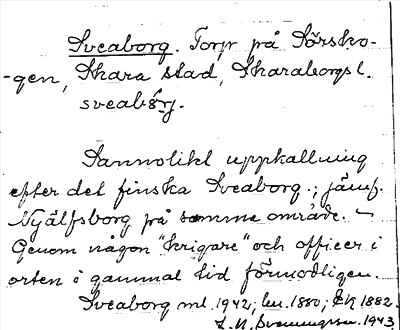 Sveaborg. Torp på Sörsko-
-gen, Skara stad, Skaraborgs l.
sveabǫ́rj.
Sannolikt uppkallning
efter det finska Sveaborg.; jämf.
Nyälfsborg på samma område. –
Genom någon "krigare" och officer i
orten i gammal tid förmodligen.
Sveaborg ml. 1942; 1880; EK 1882.
1943